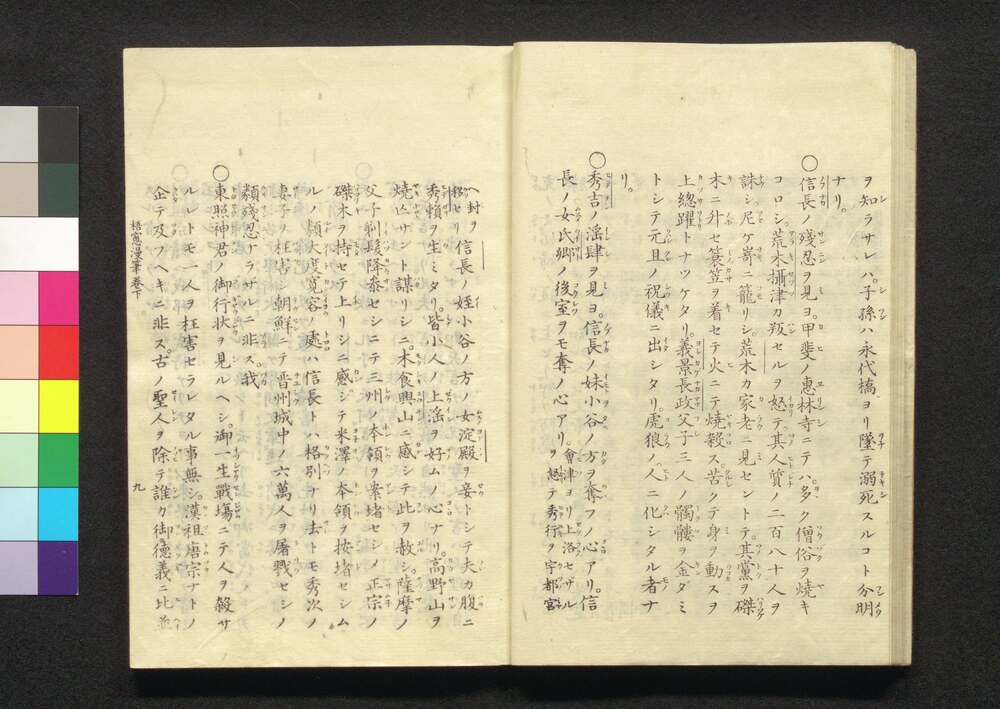 ヲ知ラサレハ。子孫ハ永代橋ヨリ墜テ溺死スルコト分明
ナリ。
〇信長ノ残忍ヲ見ヨ。甲斐ノ惠林寺ニテハ。多ク僧俗ヲ焼キ
コロシ。荒木攝津カ叛セルヲ怒テ。其人質ノ二百八十人ヲ
誅シ。尼ケ崎ニ籠リシ荒木カ家老ニ見セントテ。其黨ヲ磔
木ニ升セ蓑笠ヲ着セテ火ニテ焼殺ス。苦クテ身ヲ動スヲ
上總躍トナツケタリ。義景長政父子三人ノ髑髏ヲ金タミ
トシテ元旦ノ祝儀ニ出シタリ。虎狼ノ人ニ化シタル者ナ
リ。
〇秀吉ノ滛肆ヲ見ヨ。信長ノ妹小谷ノ方ヲ奪フノ心アリ。信
長ノ女氏郷ノ後室ヲモ奪ノ心アリ。會津ヨリ上洛セザル
ヲ怒テ秀行ヲ宇都宮
ヘ封ヲ
移セリ
信長ノ姪小谷ノ方ノ女淀殿ヲ妾トシテ夫カ腹ニ
秀頼ヲ生ミタリ。皆小人ノ上滛ヲ好ムノ心ナリ。高野山ヲ
焼亡サント謀リシニ。木食興山ニ感シテ此ヲ赦シ。薩摩ノ
父子剃髪降参セシニテ三州ノ本領ヲ案堵セシメ正宗ノ
磔木ヲ持セテ上リシニ感シテ米澤ノ本領ヲ按堵セシム
ルノ類大度寛容ノ處ハ信長トハ格別ナリ去トモ秀次ノ
妻子ヲ枉害シ朝鮮ニテ晋州城中ノ六萬人ヲ屠戮セシノ
類残忍ナラザルニ非ス。我
〇東照神君ノ御行状ヲ見ルヘシ。御一生戰場ニテ人ヲ殺サ
ルレトモ一人ヲ枉害セラレタル事無シ。漢祖唐宗ナトノ
企テ及フヘキニ非ス。古ノ聖人ヲ除テ誰カ御德義ニ比並
梧窻漫筆 卷下
九